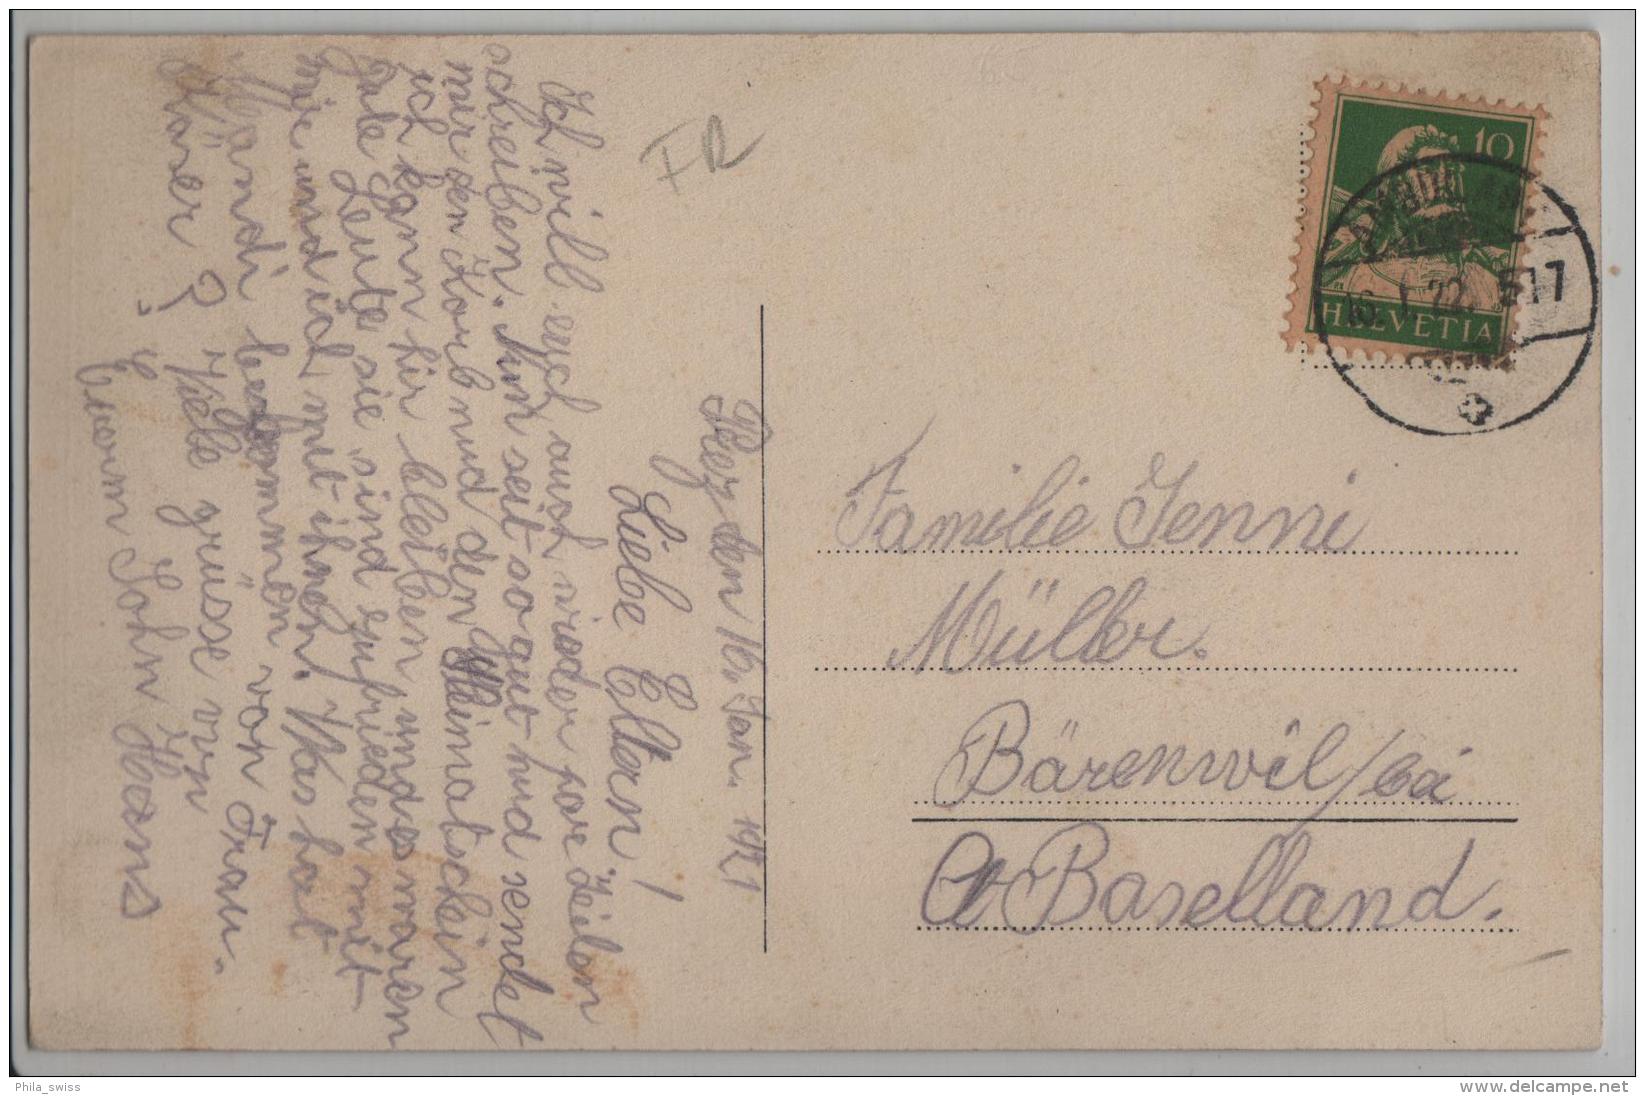 FR
10
HELVETIA
16. I. 22. 517
den 16. Jan. 1921
Liebe Eltern!
Ich will euch auch wieder pare Zeilen
schreiben. Nun seit so gut nud sendet
mir den Korb nud den Heimatschein
ich kann hir bleiben und es waren
gute Leute sie sind zufrieden mit
mir und ich mit ihnen. Was hat
Mändi bekommen von Frau.
Karer? Viele grüsse von
Euerm Sohn Hans
Familie Jenni
Müller.
Bärenwil / bei
Baselland.
Phila_swiss
www.delcampe.net